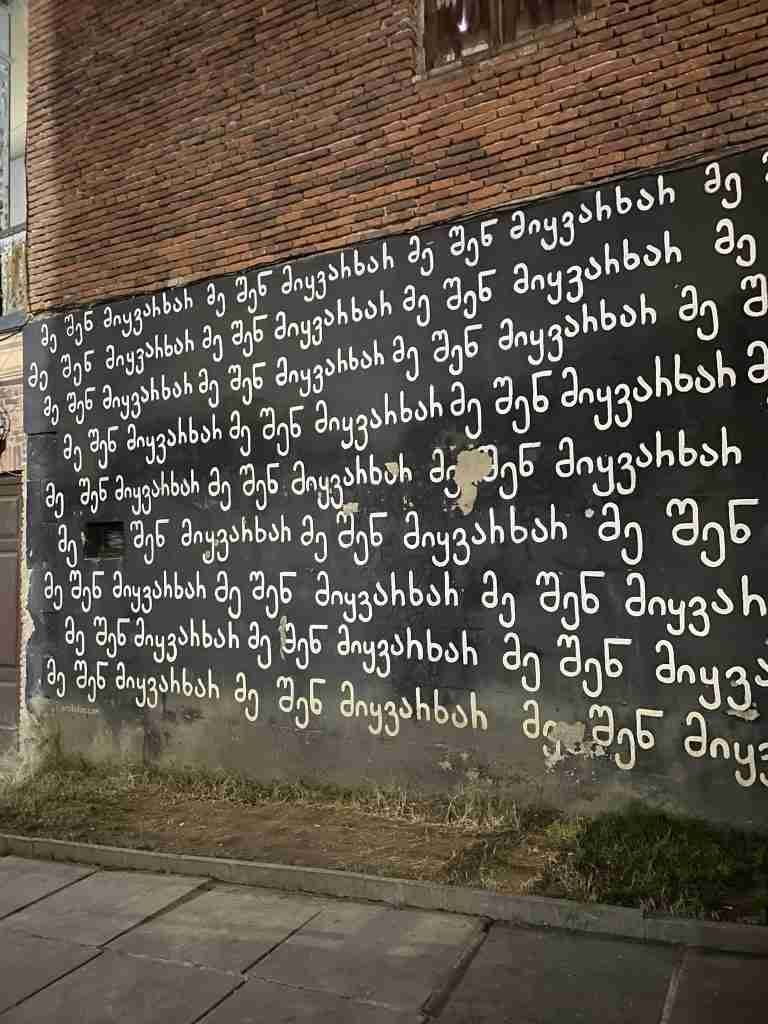 მე შენ მიყვარხარ მე შენ მიყვარხარ მე შენ მიყვარხარ მე
მე შენ მიყვარხარ მე შენ მიყვარხარ მე შენ მიყვარხარ მე
მე შენ მიყვარხარ მე შენ მიყვარხარ მე შენ მიყვარხარ მე
მე შენ მიყვარხარ მე შენ მიყვარხარ მე შენ მიყვარხარ
მე შენ მიყვარხარ მე შენ მიყვარხარ მე შენ მიყვარხარ
მე შენ მიყვარხარ მე შენ მიყვარხარ მე შენ
მე შენ მიყვარხარ მე შენ მიყვარხარ მე შენ
მე შენ მიყვარხარ მე შენ მიყვარხარ მე შენ
მე შენ მიყვარხარ მე შენ მიყვარხარ მე შენ